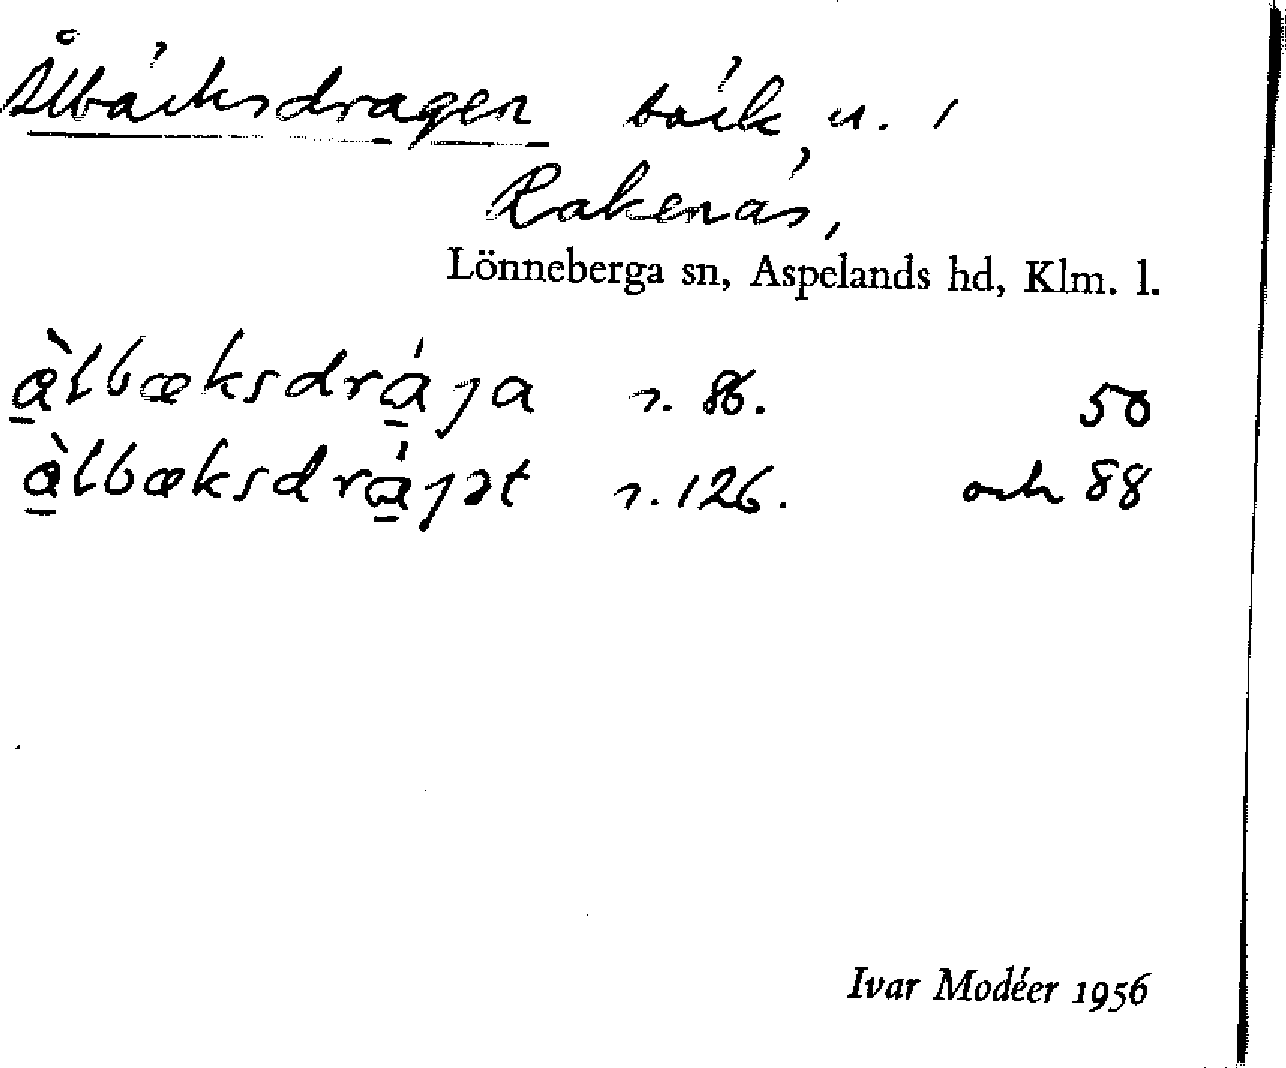 Ålbäcksdragen bäck, n. i
Rakenäs,
Lönneberga sn, Aspelands hd, Klm. l.
à̲lbæksdrá̲ȷa s. 86. 50
à̲lbæksdrá̲ȷət s. 126. och 88
Ivar Modéer 1956